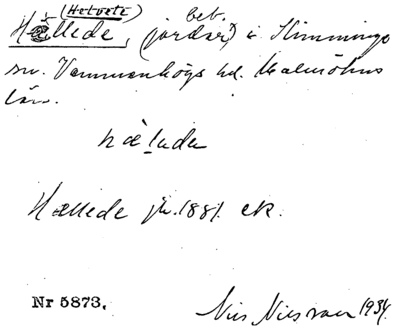 (Helvete)
Hællede, (jordar) beb. i Slimminge
sn. Vemmenhögs hd. Malmöhus
län.
hæludu
Hællede jb. 1881. ek.
Nr 5873. Nils Nilsson 1934.